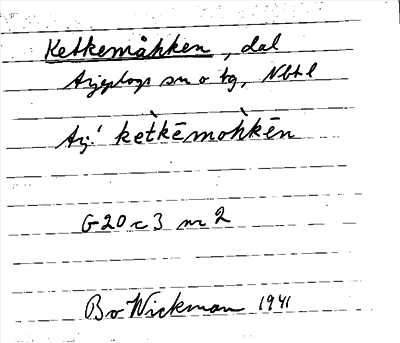 Ketkemåkken, dal
Arjeplogs sn o tg, Nbtl
Arj! kètkēmoh̀kēn
G20c3 nr 2
Bo Wickman 1941